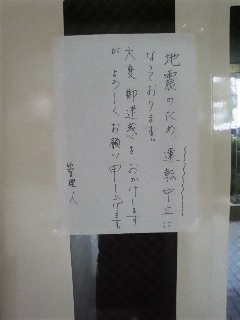 地震のため 運転中止に
なっております。
大変御迷惑をおかけします
が よろしくお願い申し上げます
管理人